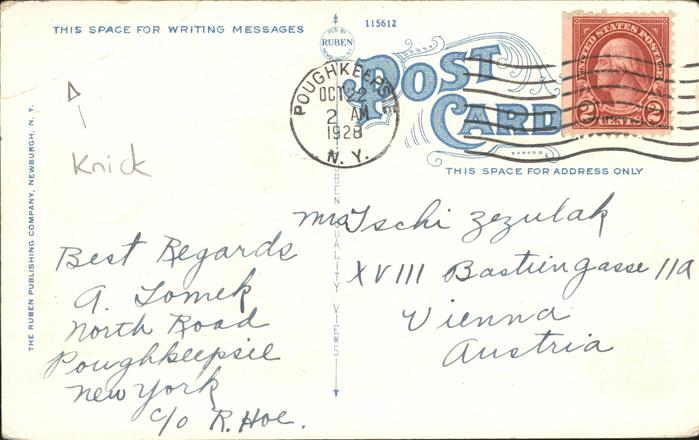 THIS SPACE FOR WRITING MESSAGES
115612
PUB BY
RUBEN
POST
CARD
POUGHKEEPSIE
OCT 22
2 AM
1928
N. Y.
UNITED STATES POSTAGE
2 CENTS 2
THIS SPACE FOR ADDRESS ONLY
Knick
THE RUBEN PUBLISHING COMPANY, NEWBURGH, N. Y.
RUBEN QUALITY VIEWS
Best Regards
A. Tomek
North Road
Poughkeepsie
New York
c/o R. Hoe.
Mrs Tschi Zezulak
XVIII Bastiengasse 11a
Vienna
Austria